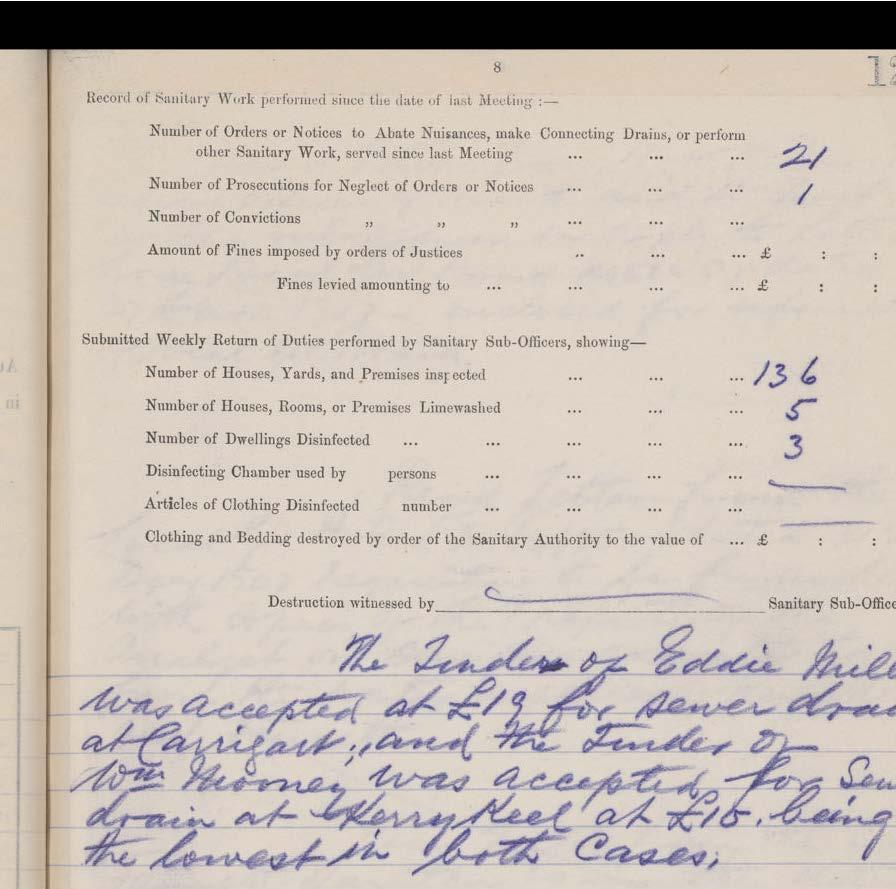 8
12
Record of Sanitary Work performed since the date of last Meeting :—
Number of Orders or Notices to Abate Nuisances, make Connecting Drains, or perform
other Sanitary Work, served since last Meeting ... ... ... 21
Number of Prosecutions for Neglect of Orders or Notices ... ... ... 1
Number of Convictions „ „ „ ... ... ...
Amount of Fines imposed by orders of Justices .. ... ... £ : :
Fines levied amounting to ... ... ... ... £ : :
Submitted Weekly Return of Duties performed by Sanitary Sub-Officers, showing—
Number of Houses, Yards, and Premises inspected ... ... ... 136
Number of Houses, Rooms, or Premises Limewashed ... ... ... 5
Number of Dwellings Disinfected ... ... ... ... ... 3
Disinfecting Chamber used by persons ... ... ... ...
Articles of Clothing Disinfected number ... ... ... ...
Clothing and Bedding destroyed by order of the Sanitary Authority to the value of ... £ : :
Destruction witnessed by Sanitary Sub-Office
The Tender of Eddie Mill
was accepted at £19 for sewer drai
at Carrigart, and the Tender of
Wm Mooney was accepted for Sew
drain at Kerrykeel at £15. being
the lowest in both Cases,